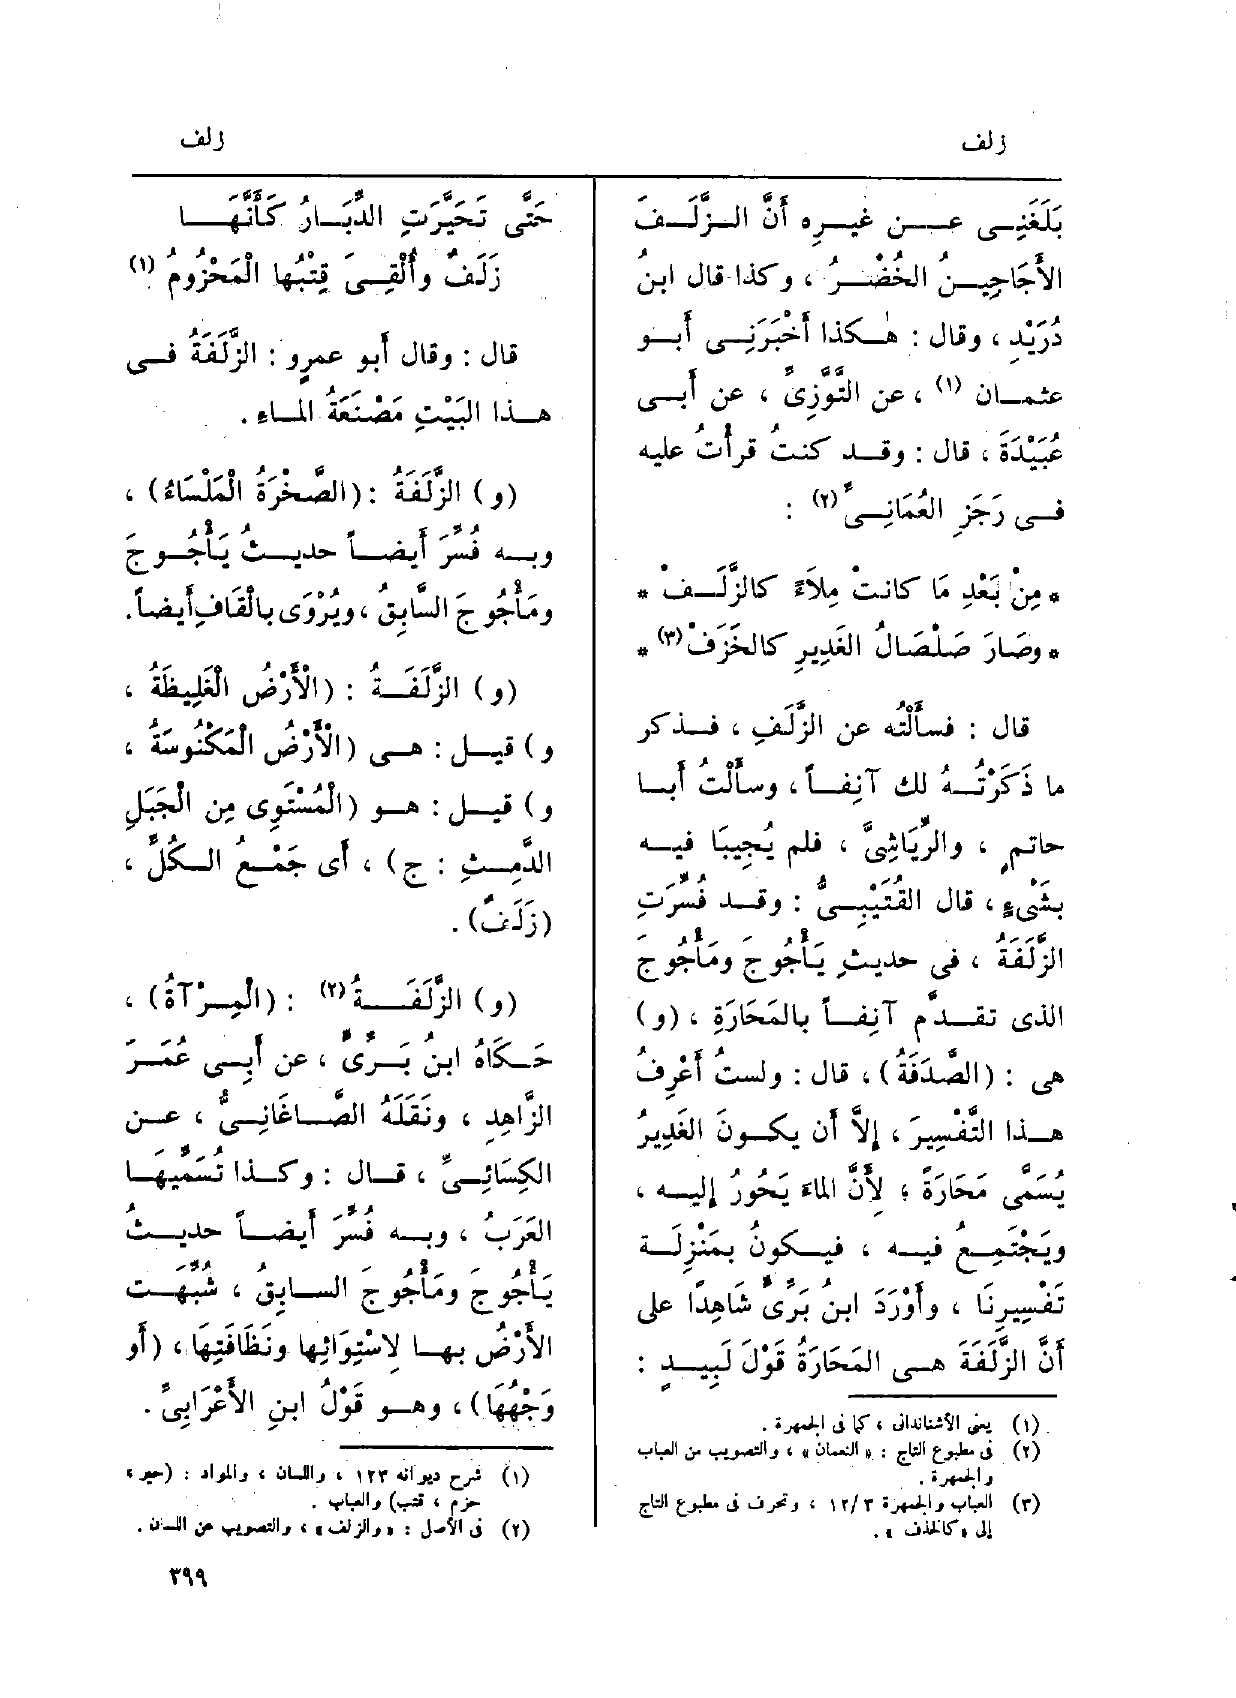 زلف
بَلَغَنِى عن غيرِه أَنَّ الزَّلَفَ
الأَجَاجِينُ الخُضْرُ ، وكذا قال ابنُ
دُرَيْدٍ ، وقال : هٰكذا أَخْبَرَنِى أَبو
عثمان (١) ، عن التَّوَّزِىِّ ، عن أَبى
عُبَيْدَةَ ، قال : وقد كنتُ قرأْتُ عليه
فى رَجَزِ العُمَانِىِّ (٢) :
* مِنْ بَعْدِ مَا كانتْ مِلَاءً كالزَّلَفْ *
* وصَارَ صَلْصَالُ الغَدِيرِ كالخَزَفْ (٣) *
قال : فسأَلْتُه عن الزَّلَفِ ، فذكر
ما ذَكَرْتُهُ لك آنِفاً ، وسأَلْتُ أَبا
حاتمٍ ، والرِّيَاشِىَّ ، فلم يُجِيبَا فيه
بشَىْءٍ ، قال القُتَيْبِىُّ : وقد فُسِّرَتِ
الزَّلَفَةُ ، فى حديثِ يَأْجُوجَ ومَأْجُوجَ
الذى تقدَّم آنِفاً بالمَحَارَةِ ، (و)
هى : (الصَّدَفَةُ) ، قال : ولستُ أَعْرِفُ
هذا التَّفْسِيرَ ، إِلاَّ أَن يكونَ الغَدِيرُ
يُسَمَّى مَحَارَةً ؛ لِأَنَّ الماءَ يَحُورُ إِليه ،
ويَجْتَمِعُ فيه ، فيكونُ بمَنْزِلَة
تَفْسِيرِنَا ، وأَوْرَدَ ابنُ بَرِّىٍّ شَاهِدًا على
أَنَّ الزَّلَفَةَ هى المَحَارَةُ قَوْلَ لَبِيدٍ :
(١) يعنى الأشناندانى ، كما فى الجمهرة .
(٢) فى مطبوع التاج : « النعمان » ، والتصويب من العباب
والجمهرة .
(٣) العباب والجمهرة ١٢/٣ ، وتحرف فى مطبوع التاج
إلى «كالخذف » .
زلف
حَتَّى تَحَيَّرَتِ الدِّبَارُ كَأَنَّهَا
زَلَفٌ وأُلْقِىَ قِتْبُها المَحْزُومُ (١)
قال : وقال أَبو عمرٍو : الزَّلَفَةُ فى
هذا البَيْتِ مَصْنَعَةُ الماء .
(و) الزَّلَفَةُ : (الصَّخْرَةُ الْمَلْسَاءُ) ،
وبه فُسِّرَ أَيضاً حديثُ يَأْجُوجَ
ومَأْجُوجَ السَّابِقُ ، ويُرْوَى بالْقَافِ أَيضاً.
(و) الزَّلَفَةُ : (الْأَرْضُ الْغَلِيظَةُ ،
و) قيل : هى (الْأَرْضُ الْمَكْنُوسَةُ ،
و) قيل : هو (الْمُسْتَوِى مِن الْجَبَلِ
الدَّمِثِ : ج) ، أَى جَمْعُ الكُلِّ ،
(زَلَفٌ) .
(و) الزَّلَفَةُ (٢) : (المِرْآةُ) ،
حَكَاهُ ابنُ بَرِّىٍّ ، عن أَبِى عُمَرَ
الزَّاهِدِ ، ونَقَلَهُ الصَّاغَانِىُّ ، عن
الكِسَائِىِّ ، قال : وكذا تُسَمِّيها
العَرَبُ ، وبه فُسِّرَ أَيضاً حديثُ
يَأْجُوجَ ومَأْجُوجَ السابِقُ ، شُبِّهَت
الأَرْضُ بها لاسْتِوَائِها ونَظَافَتِهَا ، (أَو
وَجْهُهَا) ، وهو قَوْلُ ابنِ الأَعْرَابِىِّ .
(١) شرح ديوانه ١٢٣ ، واللسان ، والمواد : (حير ،
حزم ، قتب) والعباب .
(٢) فى الأصل : «والزلف» ، والتصويب من اللسان .
٣٩٩